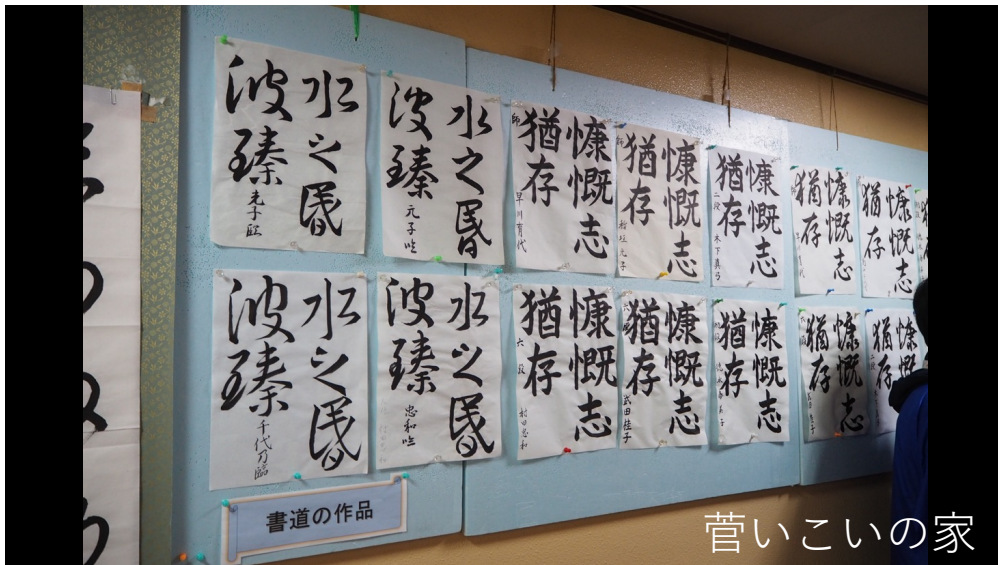 水之昬
波臻
水之昬
波臻
元子臨
慷慨志
猶存
師
早川有代
慷慨志
猶存
師
稲垣元子
慷慨志
猶存
二段
木下真弓
慷慨志
猶存
慷慨志
猶存
水之昬
波臻
千代乃臨
水之昬
波臻
忠和臨
慷慨志
猶存
六段
村田忠和
慷慨志
猶存
武田桂子
慷慨志
猶存
慷慨志
猶存
慷慨
猶存
書道の作品
菅いこいの家